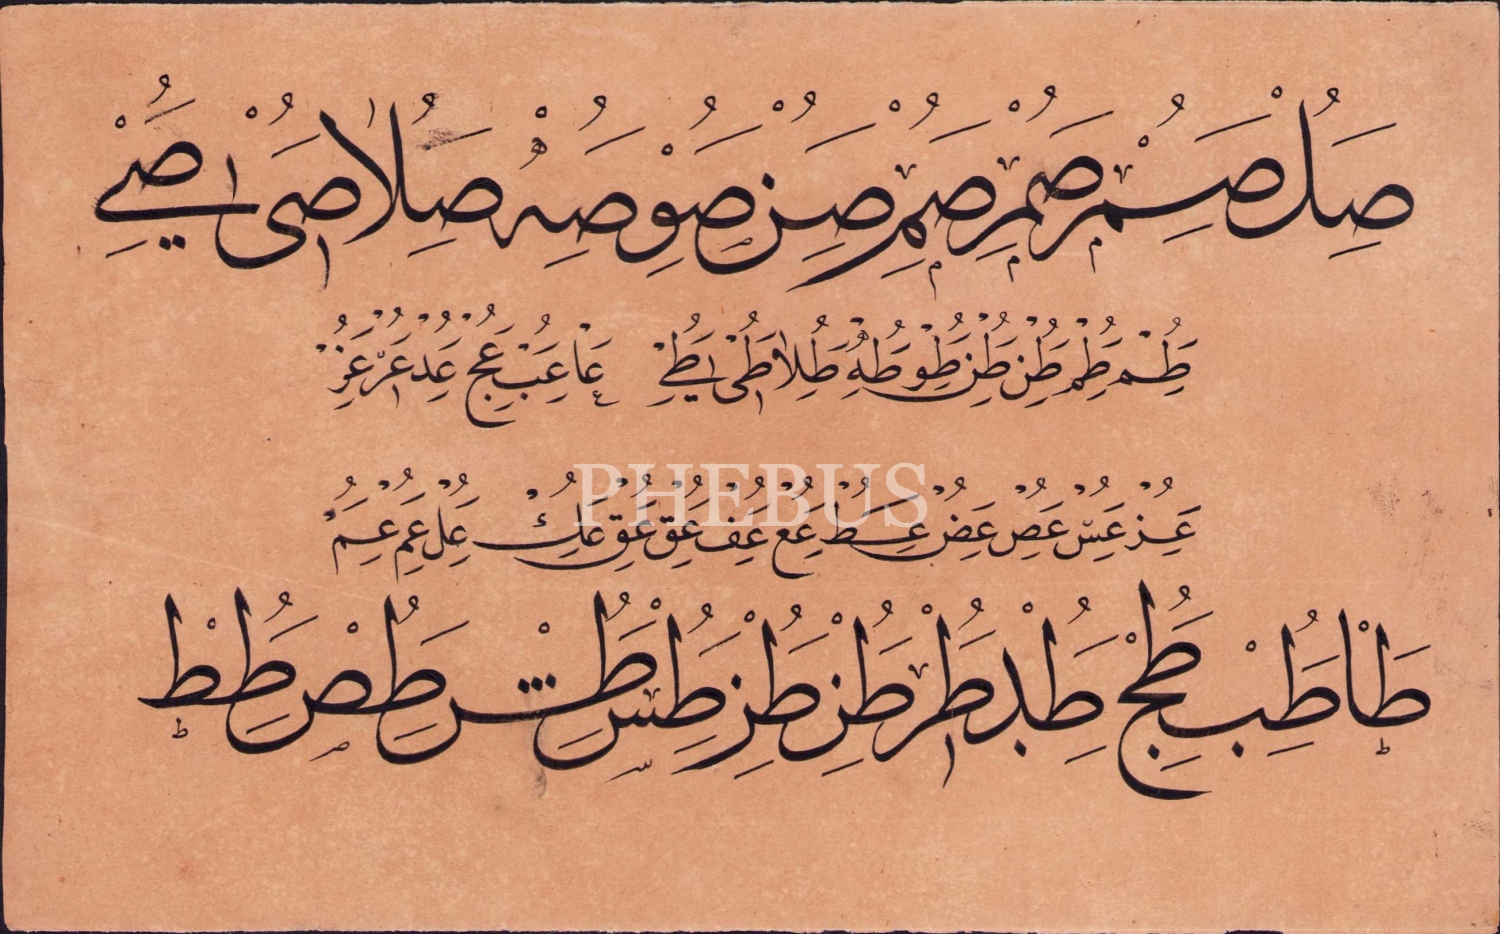 صل صم صم صم صن صو صه صلا صى صے
طم طم طن طن طو طه طلا طى طے عا عب عج عد عر عز
عز عس عص عض عط عع عف عق عق عك عل عم عم
PHEBUS
طا طب طج طد طر طز طز طس طش طص طط